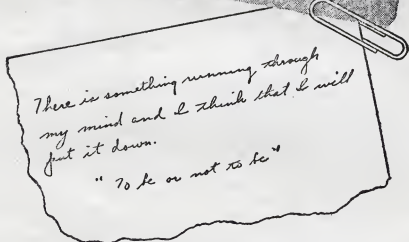 There is something running through
my mind and I think that I will
put it down.
"To be or not to be"